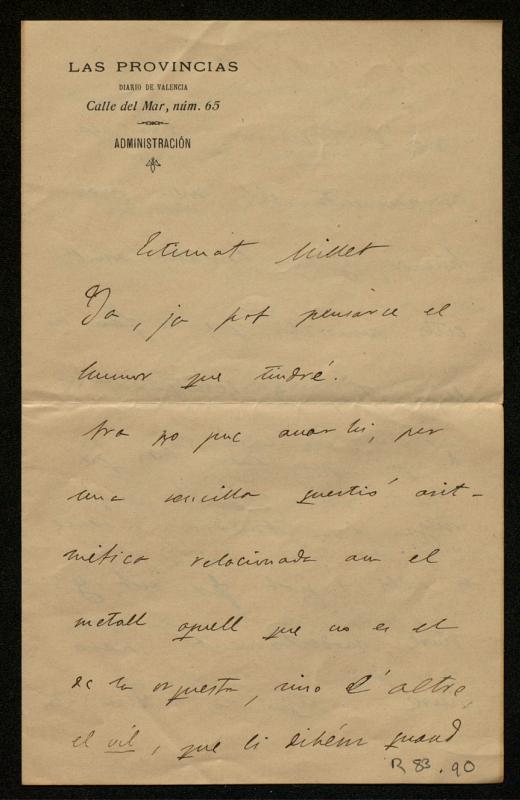 LAS PROVINCIAS
DIARIO DE VALENCIA
Calle del Mar, núm. 65
ADMINISTRACIÓN
Estimat Millet
Ja, ja pot pensarse el
humor que tindré.
Ara no puc anarhi, per
una sencilla questió arit-
mética relacionada am el
metall aquell que no es el
de la orquesta, sino l'altre,
el vil, que li dihém quand
R 83.90